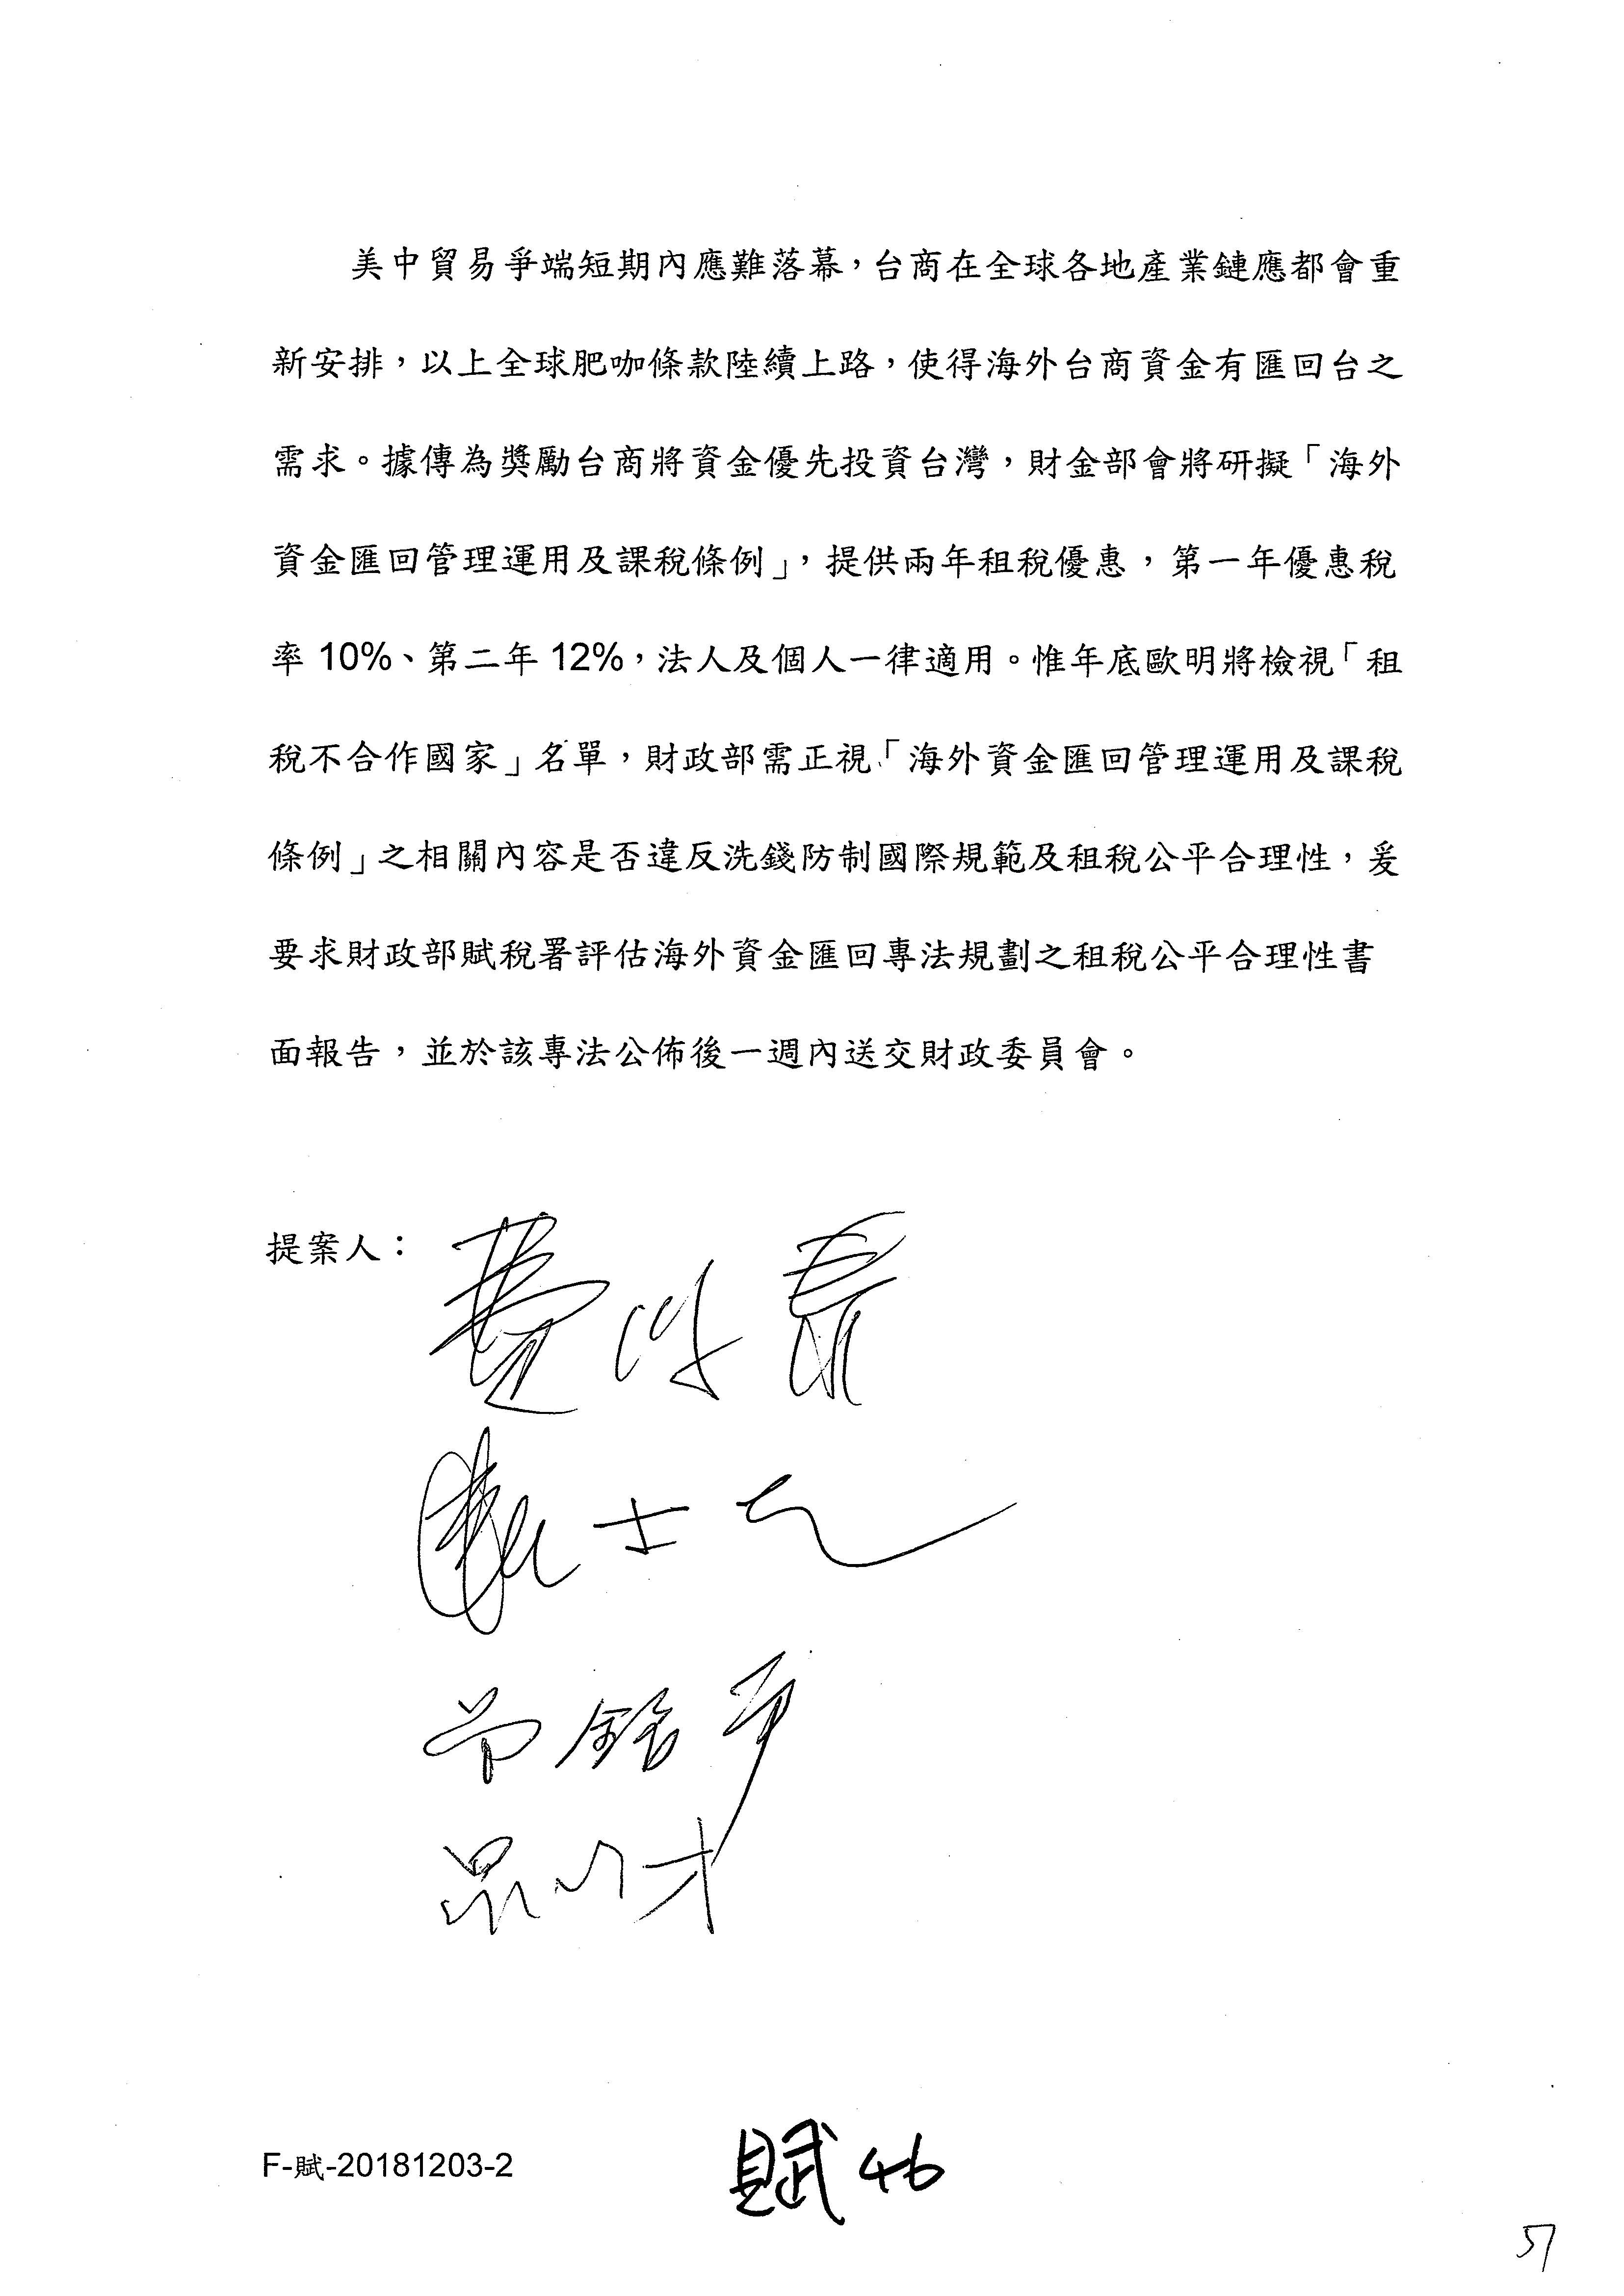 美中貿易爭端短期內應難落幕，台商在全球各地產業鏈應都會重
新安排，以上全球肥咖條款陸續上路，使得海外台商資金有匯回台之
需求。據傳為獎勵台商將資金優先投資台灣，財金部會將研擬「海外
資金匯回管理運用及課稅條例」，提供兩年租稅優惠，第一年優惠稅
率 10%、第二年 12%，法人及個人一律適用。惟年底歐明將檢視「租
稅不合作國家」名單，財政部需正視「海外資金匯回管理運用及課稅
條例」之相關內容是否違反洗錢防制國際規範及租稅公平合理性，爰
要求財政部賦稅署評估海外資金匯回專法規劃之租稅公平合理性書
面報告，並於該專法公佈後一週內送交財政委員會。
提案人：
費鴻泰
曾銘宗
F-賦-20181203-2
賦 46
51